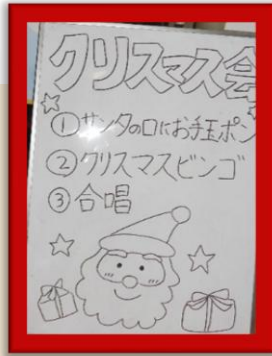 クリスマス会
①サンタの口にお手玉ポン
②クリスマスビンゴ
③合唱